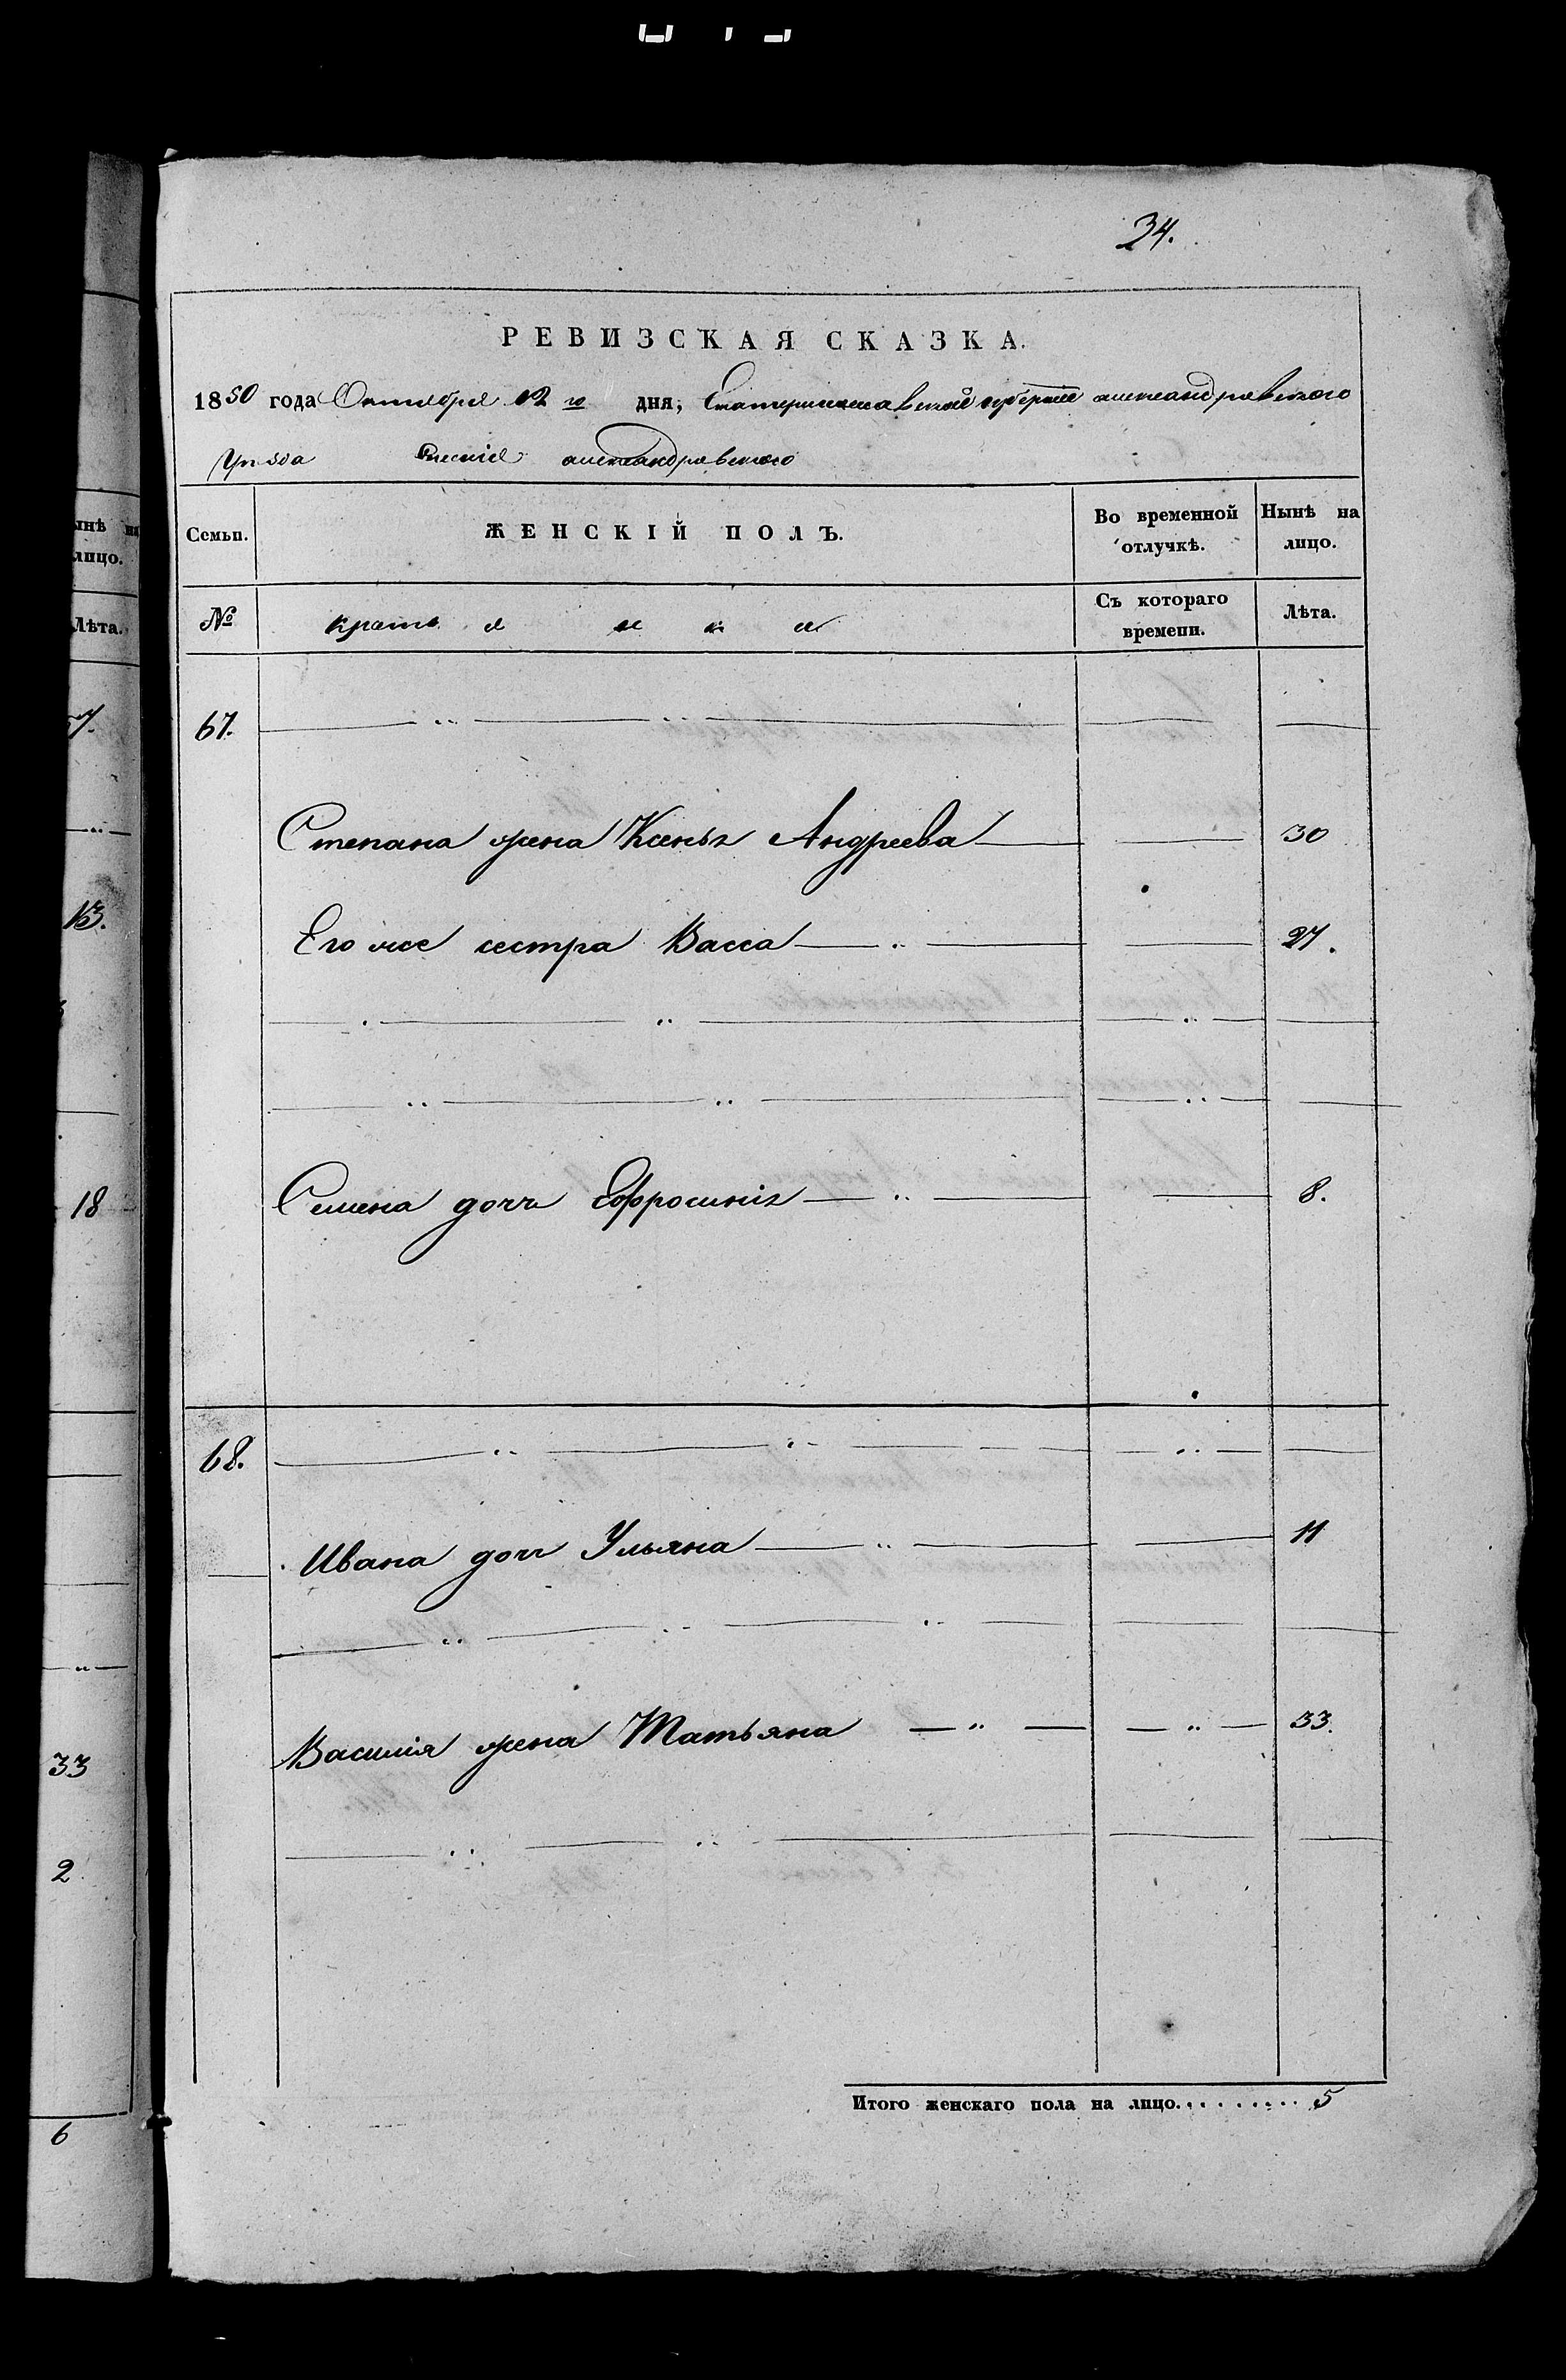 34.
РЕВИЗСКАЯ СКАЗКА.
1850 года Октября 12 го дня, Екатеринославской губернии александровского
Уезда александровского
Семьи. ЖЕНСКІЙ ПОЛЪ. Во временной отлучкѣ. Нынѣ на лицо.
№ Съ котораго времени. Лѣта.
67.
Степана жена Ксенья Андреева 30
Его же сестра Васса 27.
Семена дочь Ефросинія 8.
68.
Ивана дочь Ульяна 11
Василия жена Татьяна 33.
Итого женскаго пола на лицо. 5
ынѣ на
лицо.
Лѣта.
7.
13.
18
33
2
6